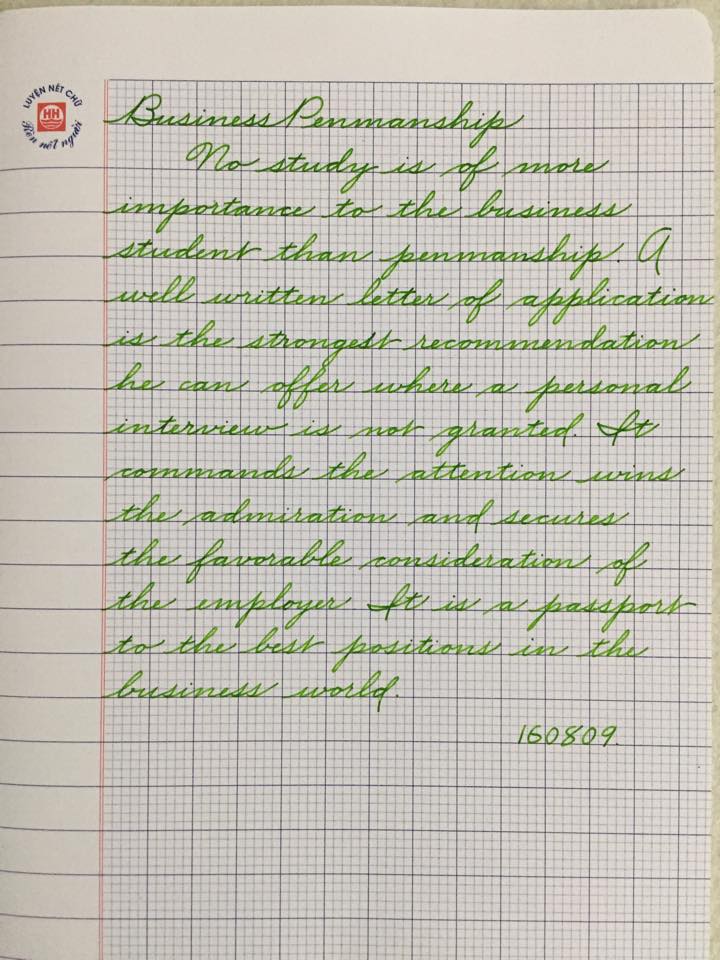 LUYỆN NÉT CHỮ
HH
Rèn nết người
Business Penmanship
No study is of more
importance to the business
student than penmanship. A
well written letter of application
is the strongest recommendation
he can offer where a personal
interview is not granted. It
commands the attention wins
the admiration and secures
the favorable consideration of
the employer It is a passport
to the best positions in the
business world.
160809.